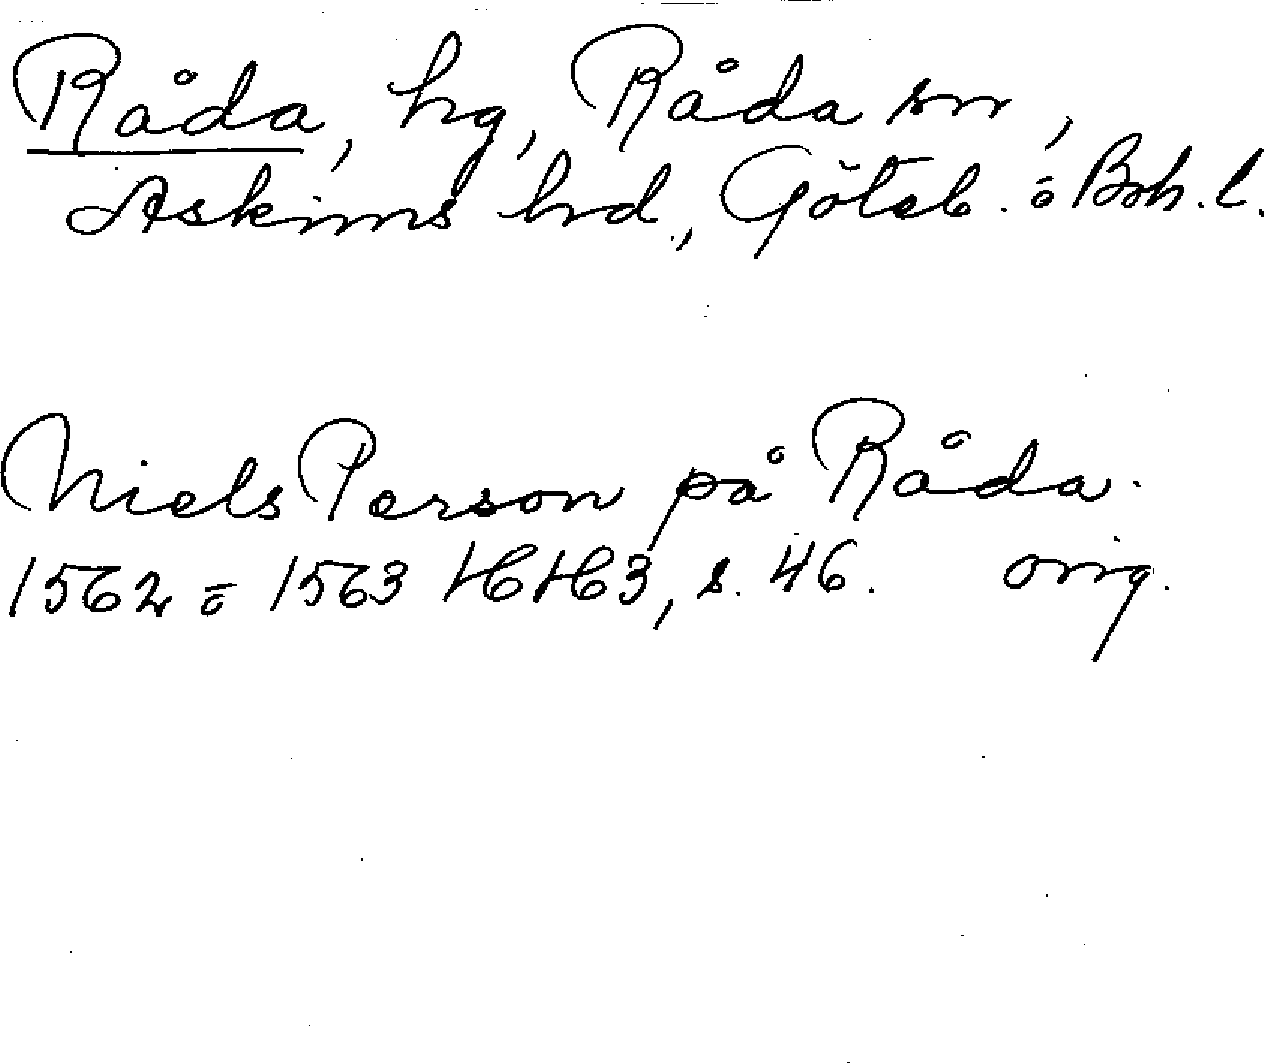 Råda, hg, Råda sn,
Askims hd., Göteb. o Boh. l.
Niels Person på Råda.
1562 o 1563 HH3, s. 46. orig.